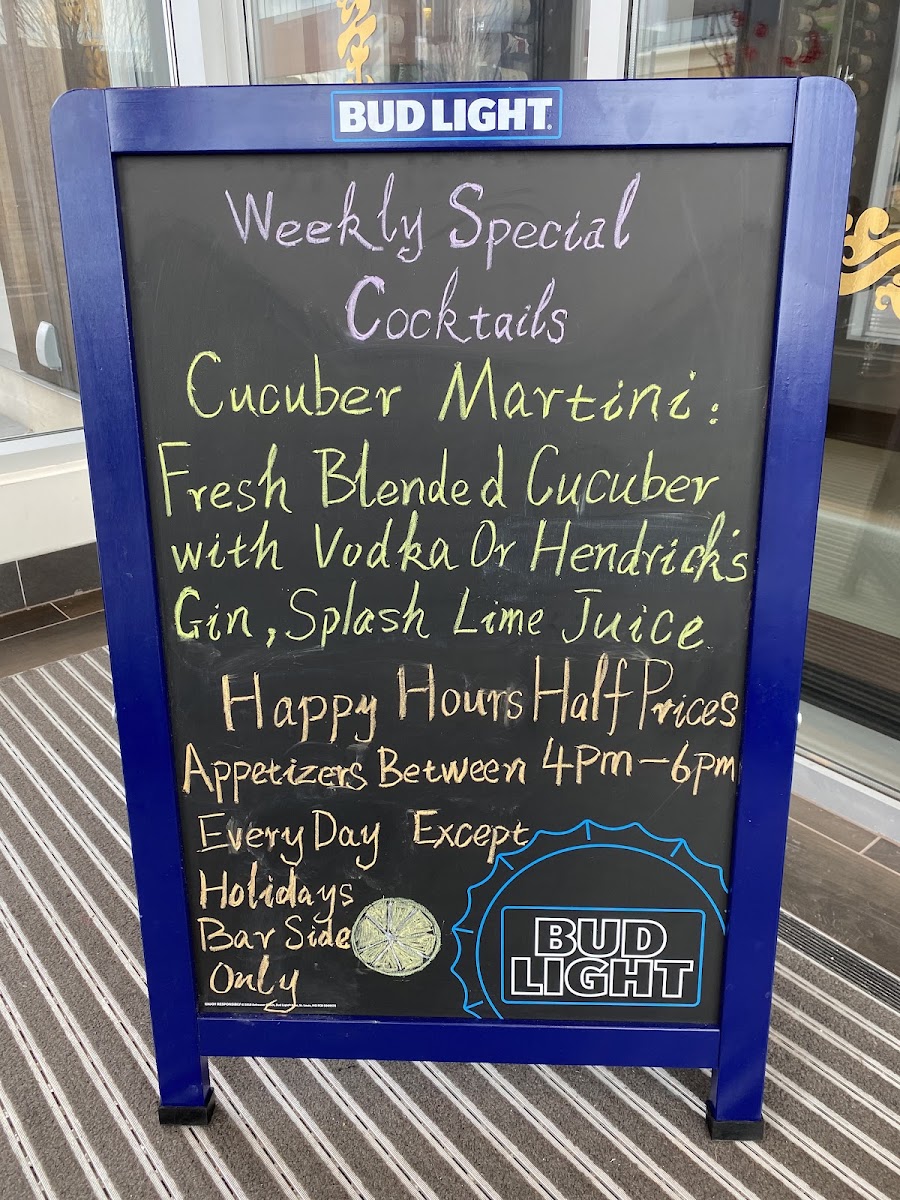 BUD LIGHT
Weekly Special
Cocktails
Cucuber Martini:
Fresh Blended Cucuber
with Vodka Or Hendrick's
Gin, Splash Lime Juice
Happy Hours Half Prices
Appetizers Between 4pm-6pm
Every Day Except
Holidays
Bar Side
Only
BUD
LIGHT